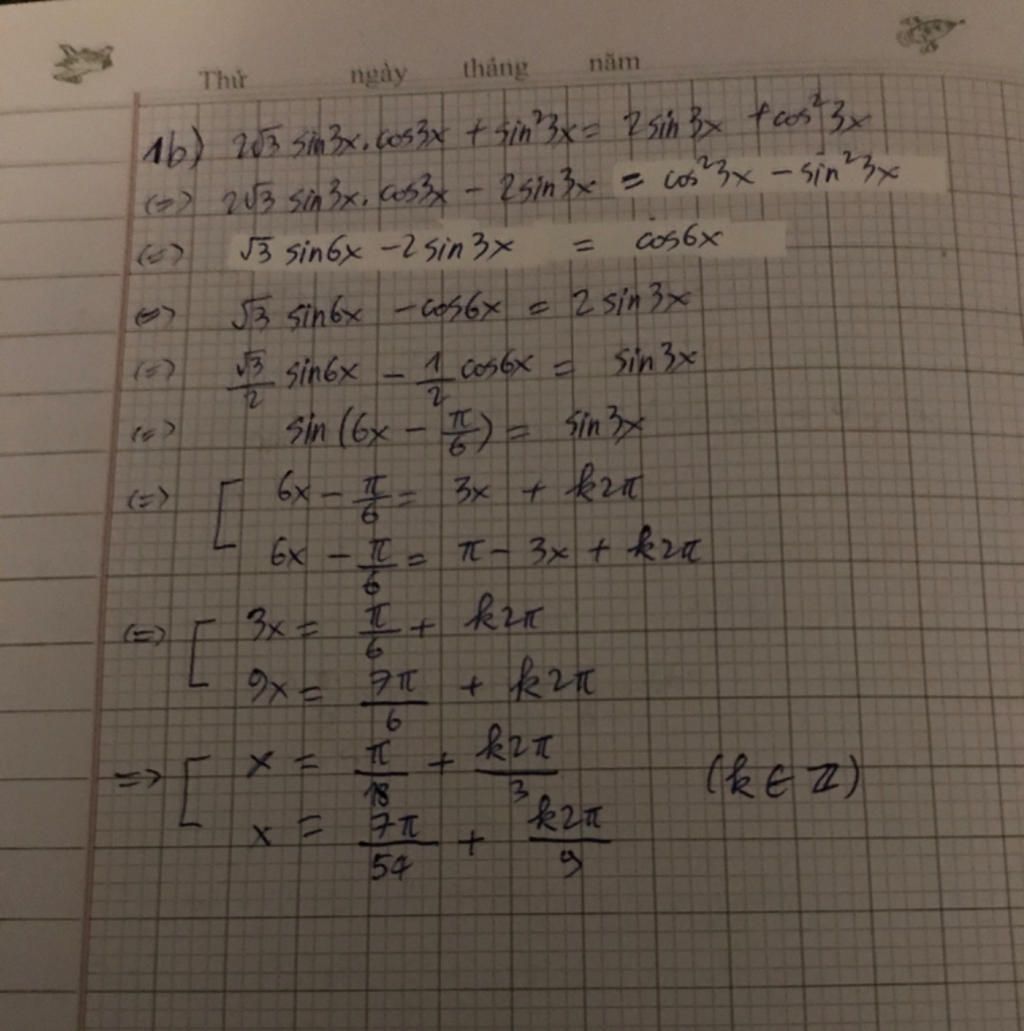 Thứ ngày tháng năm
1b) 2√3 sin3x.cos3x + sin²3x = 2sin3x + cos²3x
(=) 2√3 sin3x.cos3x - 2sin3x = cos²3x - sin²3x
(=) √3 sin6x - 2sin3x = cos6x
(=) √3 sin6x - cos6x = 2sin3x
(=) √3/2 sin6x - 1/2 cos6x = sin3x
(=) sin(6x - π/6) = sin3x
(=) [ 6x - π/6 = 3x + k2π
6x - π/6 = π - 3x + k2π
(=) [ 3x = π/6 + k2π
9x = 7π/6 + k2π
=> [ x = π/18 + k2π/3 (k ∈ Z)
x = 7π/54 + k2π/9